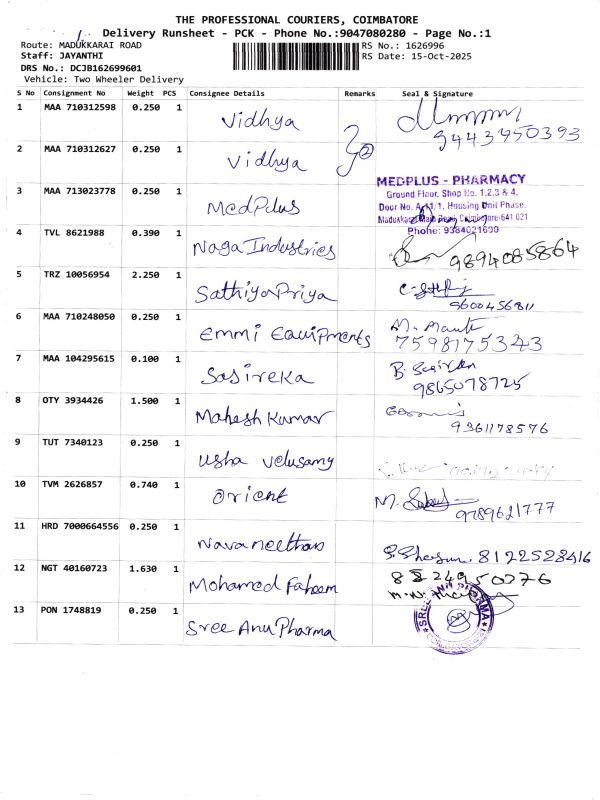 THE PROFESSIONAL COURIERS, COIMBATORE
Delivery Runsheet - PCK - Phone No.:9047080280 - Page No.:1
Route: MADUKKARAI ROAD RS No.: 1626996
Staff: JAYANTHI RS Date: 15-Oct-2025
DRS No.: DCJB162699601
Vehicle: Two Wheeler Delivery
S No Consignment No Weight PCS Consignee Details Remarks Seal & Signature
1 MAA 710312598 0.250 1 Vidhya 9443950393
2 MAA 710312627 0.250 1 Vidhya
3 MAA 713023778 0.250 1 MedPlus
MEDPLUS - PHARMACY
Ground Floor, Shop No. 1,2,3 & 4,
Door No. A-11/1, Housing Unit Phase,
Madukkarai Main Road, Coimbatore-641 021
Phone: 9384021600
4 TVL 8621988 0.390 1 Naga Industries 9894085864
5 TRZ 10056954 2.250 1 Sathiya Priya 9600456811
6 MAA 710248050 0.250 1 Emmi Equipments M.
7598175343
7 MAA 104295615 0.100 1 Sasireka B.
9865078725
8 OTY 3934426 1.500 1 Mahesh Kumar
9361178576
9 TUT 7340123 0.250 1 Usha Velusamy
10 TVM 2626857 0.740 1 Orient M. 9789621777
11 HRD 7000664556 0.250 1 Navaneethan 8122528416
12 NGT 40160723 1.630 1 Mohamed Faheem
13 PON 1748819 0.250 1 Sree Anu Pharma
SREE ANU PHARMA